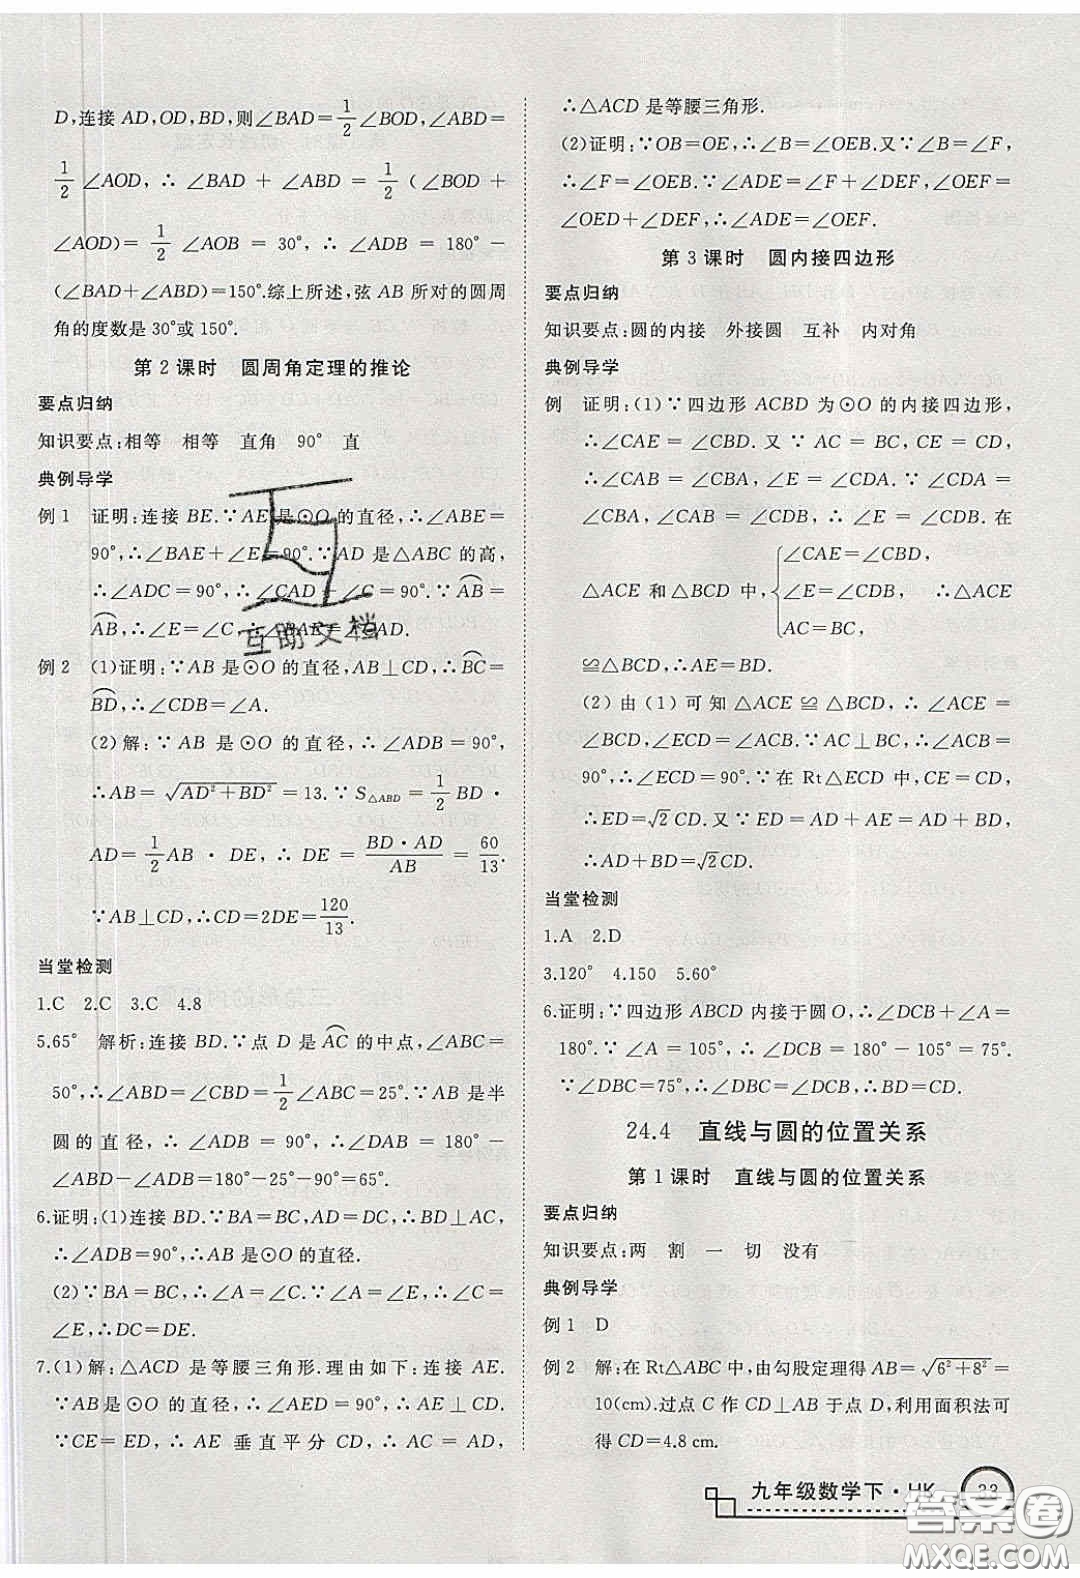 D,连接 AD,OD,BD,则∠BAD=1/2∠BOD,∠ABD=
1/2∠AOD,∴∠BAD+∠ABD=1/2(∠BOD+
∠AOD)=1/2∠AOB=30°,∴∠ADB=180°-
(∠BAD+∠ABD)=150°.综上所述,弦 AB 所对的圆周
角的度数是 30°或 150°.
第 2 课时 圆周角定理的推论
要点归纳
知识要点:相等 相等 直角 90° 直
典例导学
例 1 证明:连接 BE.∵AE是⊙O 的直径,∴∠ABE=
90°,∴∠BAE+∠E=90°.∵AD 是△ABC 的高,
∴∠ADC=90°,∴∠CAD+∠C=90°.∵AB⌒=
AB⌒,∴∠E=∠C,∴∠BAE=∠CAD.
例 2 (1)证明:∵AB 是⊙O 的直径,AB⊥CD,∴BC⌒=
BD⌒,∴∠CDB=∠A.
(2)解:∵AB 是⊙O 的直径,∴∠ADB=90°,
∴AB=√(AD²+BD²)=13.∵S△ABD=1/2 BD·
AD=1/2 AB·DE,∴DE=BD·AD/AB=60/13.
∵AB⊥CD,∴CD=2DE=120/13.
当堂检测
1.C 2.C 3.C 4.8
5.65° 解析:连接 BD.∵点 D 是AC⌒的中点,∠ABC=
50°,∴∠ABD=∠CBD=1/2∠ABC=25°.∵AB 是半
圆的直径,∴∠ADB=90°,∴∠DAB=180°-
∠ABD-∠ADB=180°-25°-90°=65°.
6.证明:(1)连接 BD.∵BA=BC,AD=DC,∴BD⊥AC,
∴∠ADB=90°,∴AB 是⊙O 的直径.
(2)∵BA=BC,∴∠A=∠C.∵∠A=∠E,∴∠C=
∠E,∴DC=DE.
7.(1)解:△ACD 是等腰三角形.理由如下:连接 AE.
∵AB 是⊙O 的直径,∴∠AED=90°,∴AE⊥CD.
∵CE=ED,∴AE 垂直平分 CD,∴AC=AD,
∴△ACD 是等腰三角形.
(2)证明:∵OB=OE,∴∠B=∠OEB.又∵∠B=∠F,
∴∠F=∠OEB.∵∠ADE=∠F+∠DEF,∠OEF=
∠OED+∠DEF,∴∠ADE=∠OEF.
第 3 课时 圆内接四边形
要点归纳
知识要点:圆的内接 外接圆 互补 内对角
典例导学
例 证明:(1)∵四边形 ACBD 为⊙O 的内接四边形,
∴∠CAE=∠CBD.又∵AC=BC,CE=CD,
∴∠CAB=∠CBA,∠E=∠CDA.∵∠CDA=
∠CBA,∠CAB=∠CDB,∴∠E=∠CDB.在
∠CAE=∠CBD,
△ACE 和△BCD 中,{∠E=∠CDB, ∴△ACE
AC=BC,
≌△BCD,∴AE=BD.
(2)由(1)可知△ACE≌△BCD,∴∠ACE=
∠BCD,∠ECD=∠ACB.∵AC⊥BC,∴∠ACB=
90°,∴∠ECD=90°.∵在 Rt△ECD 中,CE=CD,
∴ED=√2CD.又∵ED=AD+AE=AD+BD,
∴AD+BD=√2CD.
当堂检测
1.A 2.D
3.120° 4.150 5.60°
6.证明:∵四边形 ABCD 内接于圆,∴∠DCB+∠A=
180°.∵∠A=105°,∴∠DCB=180°-105°=75°.
∵∠DBC=75°,∴∠DCB=∠DBC,∴BD=CD.
24.4 直线与圆的位置关系
第 1 课时 直线与圆的位置关系
要点归纳
知识要点:两 割 一 切 没有
典例导学
例 1 D
例 2 解:在 Rt△ABC 中,由勾股定理得 AB=√(6²+8²)=
10(cm).过点 C 作 CD⊥AB 于点 D,利用面积法可
得 CD=4.8 cm.
九年级数学下·HK 23
互助文档
答案圈
MXQE.COM